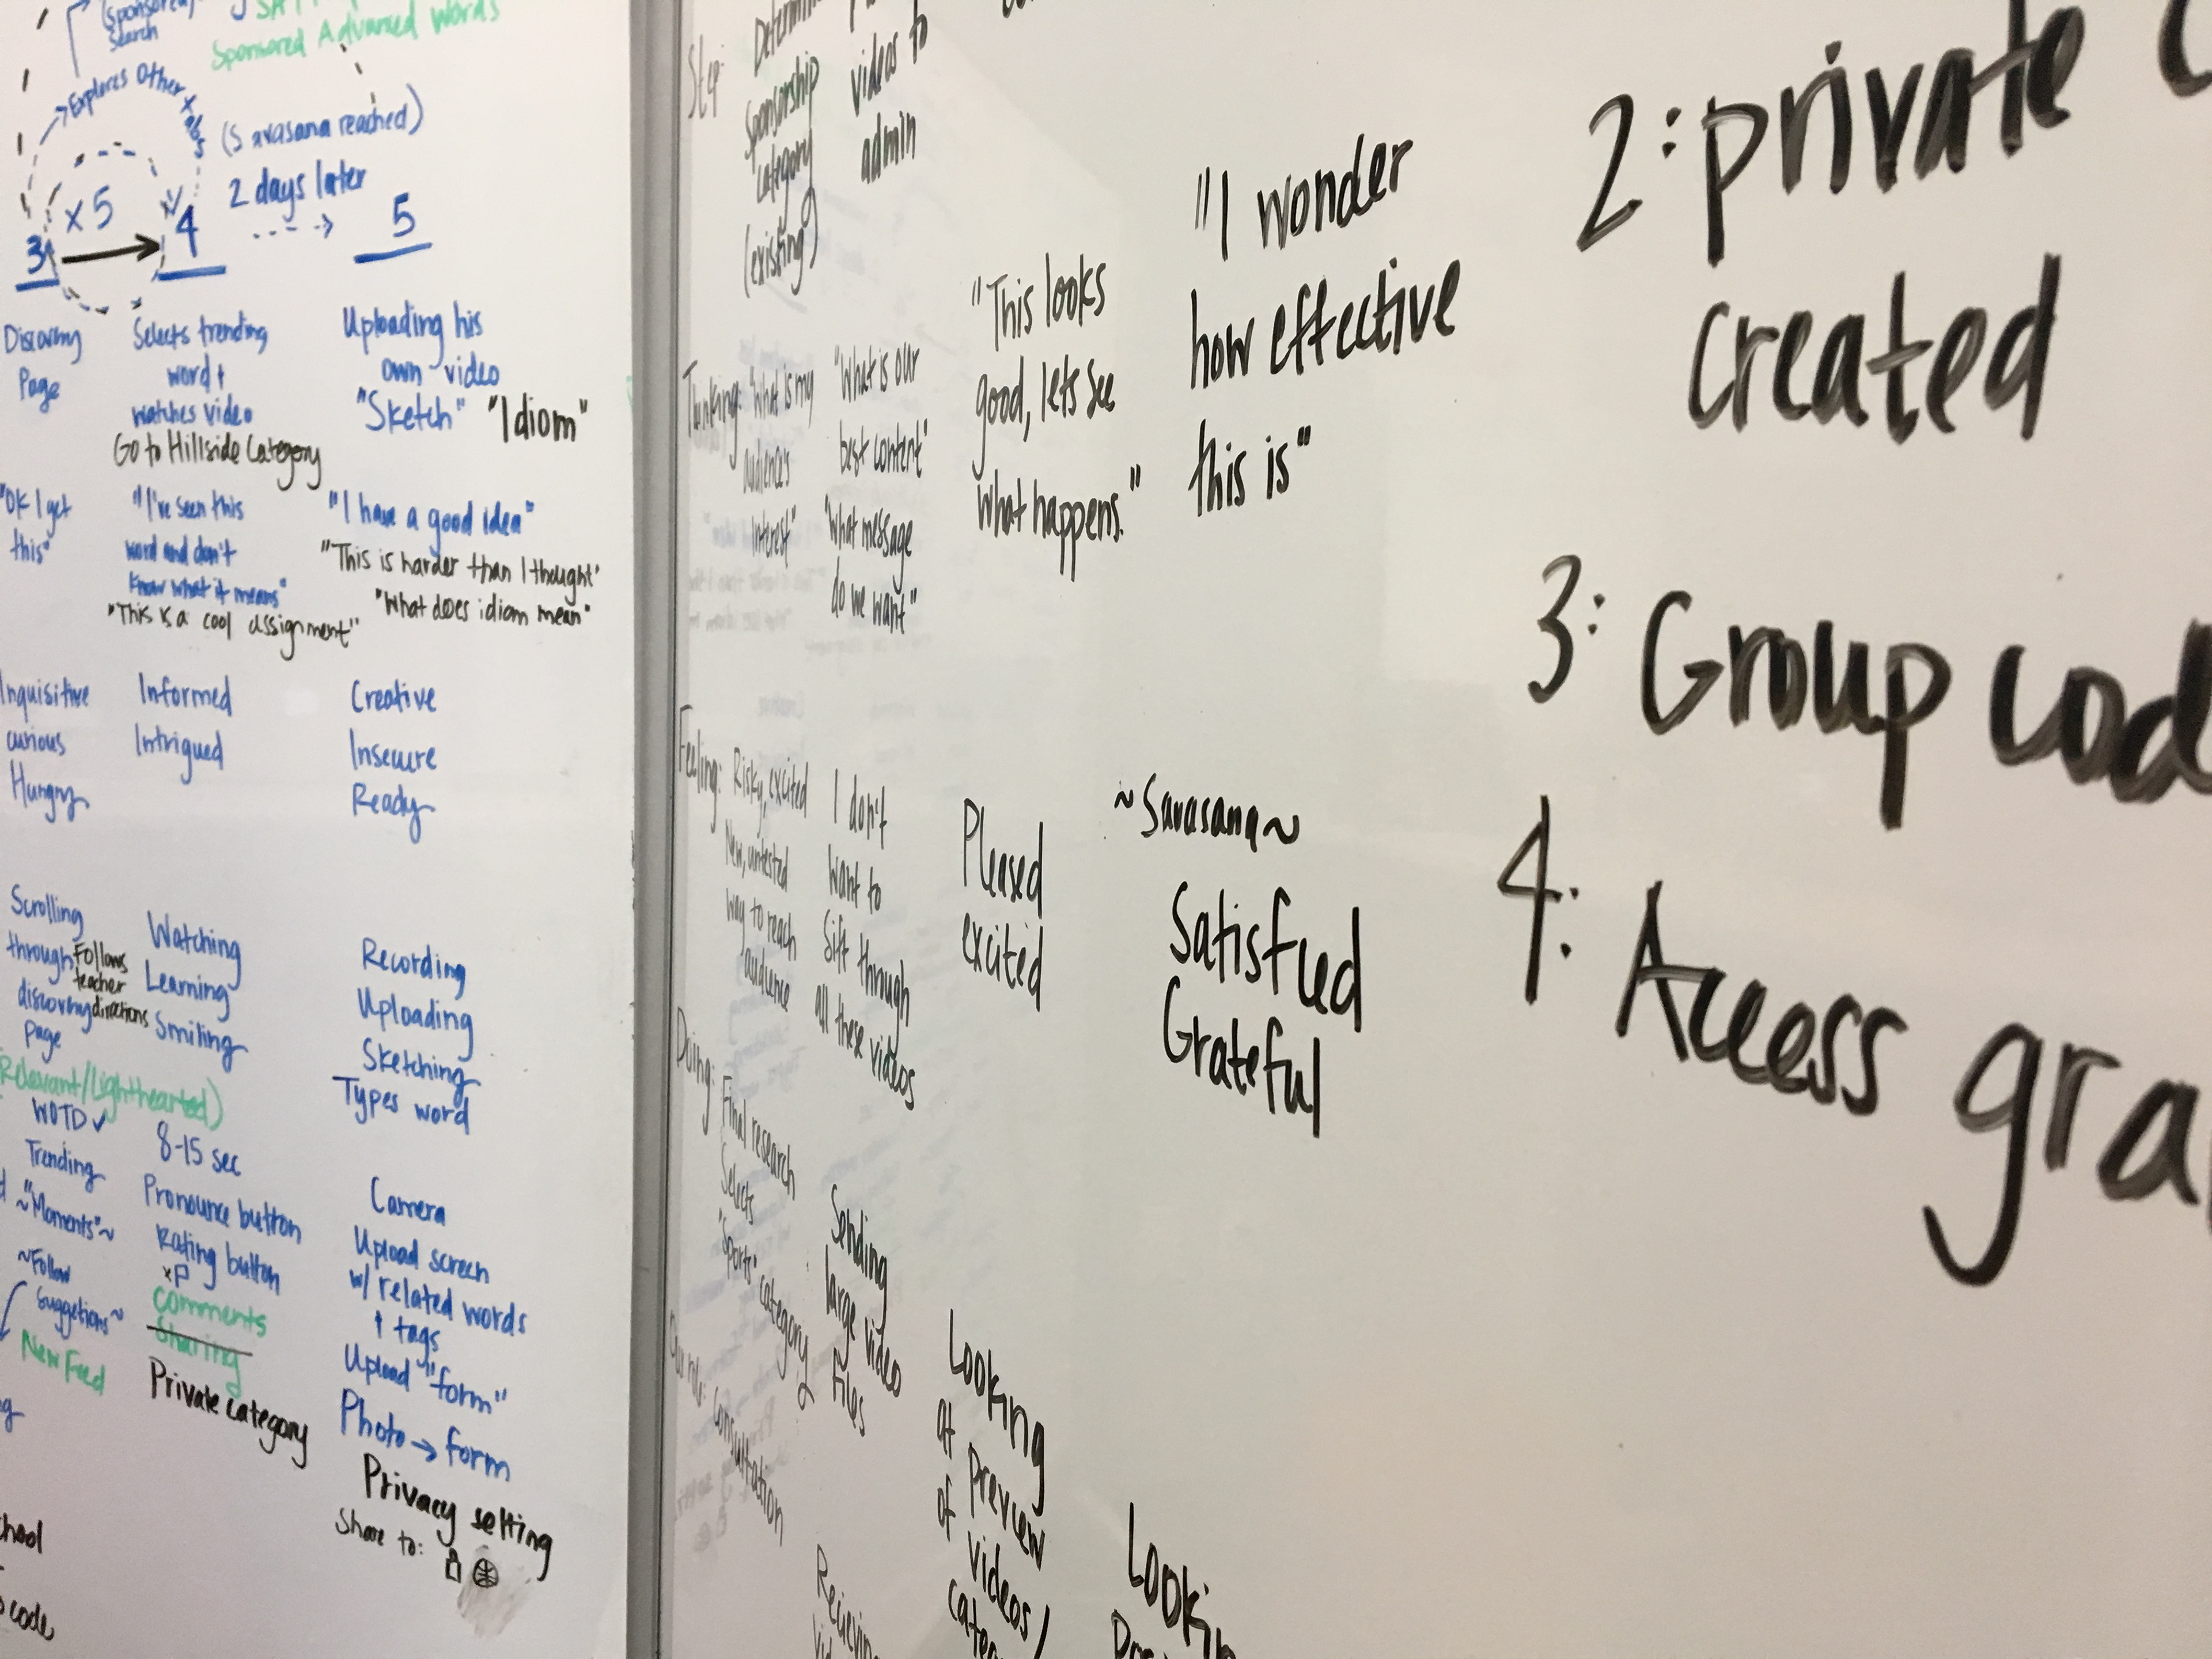 search
Sponsored Advanced Words
Explores Other
(Savasana reached)
2 days later
x5
3
4
5
Discovery
Page
Selects trending
word +
watches video
Go to Hillside Category
Uploading his
own video
"Sketch" "Idiom"
"OK I get
this"
"I've seen this
word and don't
know what it means"
"This is a cool assignment"
"I have a good idea"
"This is harder than I thought"
"What does idiom mean"
Inquisitive
curious
Hungry
Informed
Intrigued
Creative
Insecure
Ready
Scrolling
through
discovery
page
Follows
teacher
directions
Watching
Learning
Smiling
Recording
Uploading
Sketching
Types word
Relevant/Lighthearted)
WOTD ✓
Trending
~"Moments"~
~Follow
Suggestions~
New Feed
8-15 sec
Pronounce button
Rating button
xP
comments
Sharing
Private category
Camera
Upload screen
w/ related words
↑ tags
Upload "form"
Photo → form
Privacy setting
Share to:
code
Step:
Sponsorship
category
(existing)
videos to
admin
Thinking: "What is my
audience's
interest"
"What is our
best content"
"What message
do we want"
"This looks
good, lets see
what happens."
"I wonder
how effective
this is"
Feeling: Risky, excited
New, untested
way to reach
audience
I don't
want to
sift through
all these videos
Pleased
excited
~Savasana~
Satisfied
Grateful
Doing: Final research
Selects
"Sports" category
Sending
large video
files
Looking
at preview
of videos/
Our role: Consultation
2: private
created
3: Group
4: Access